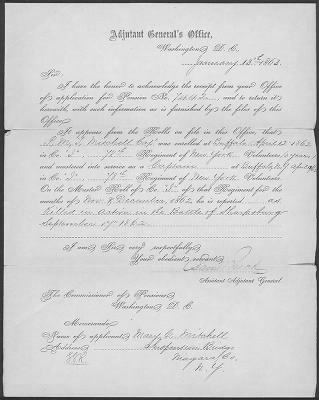 Adjutant General's Office,
Washington, D. C.
January 13th, 1863.
Sir:
I have the honor to acknowledge the receipt from your Office
of application for Pension No. and to return it
herewith, with such information as is furnished by the files of this
Office.
It appears from the Rolls on file in this Office, that
Mitchell was enrolled at Buffalo, April 2 1862
in Co. "I" 78th Regiment of New York Volunteers, 3 years
and mustered into service as a at Buffalo, N.Y. April
in Co. "I" 78th Regiment of New York Volunteers.
On the Muster Roll of Co. "I" of that Regiment for the
months of Nov. & December, 1862, he is reported as
Killed in action in the Battle of Sharpsburg
September 17 1862
I am, Sir, very respectfully,
Your obedient servant,
Assistant Adjutant General.
The Commissioner of Pensions,
Washington, D. C.
Memoranda:
Name of applicant, Mary Mitchell
Address, Suspension Bridge
Niagara Co.
N. Y.